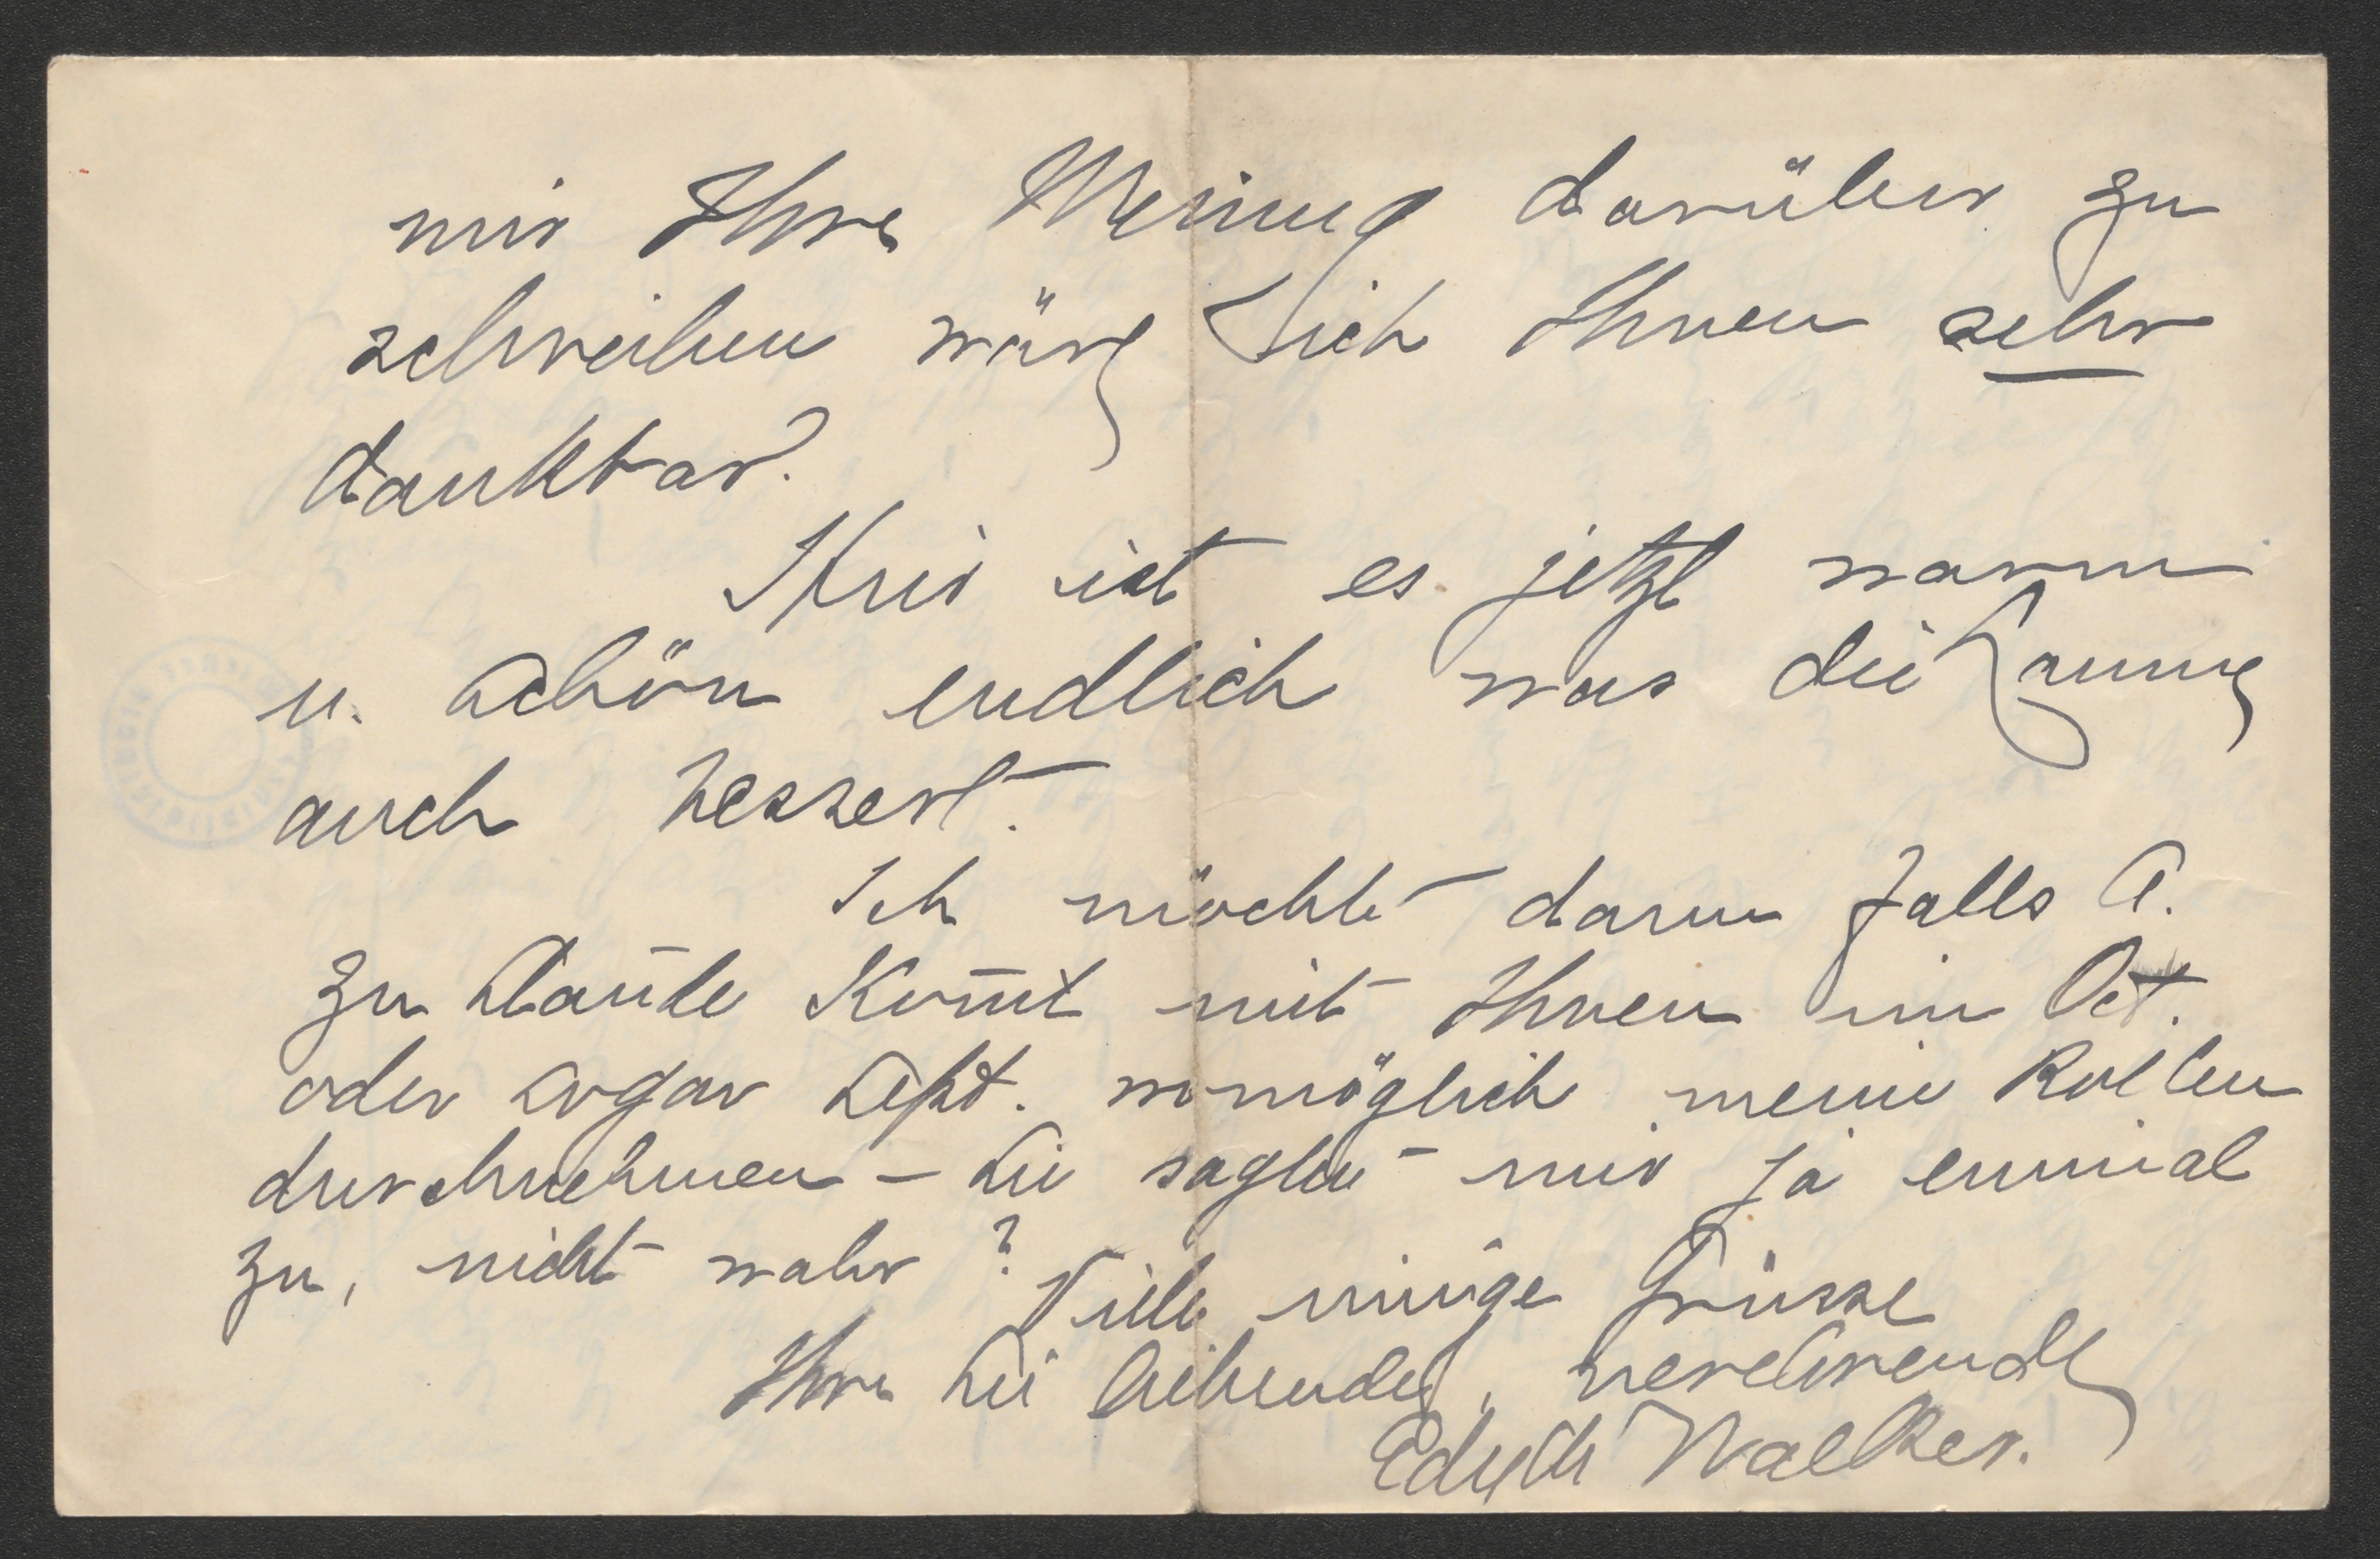 mir Ihre Meinung darüber zu
schreiben wäre ich Ihnen sehr
dankbar.
Hier ist es jetzt warm
u. schön endlich was die Laune
auch bessert.
Ich möchte dann falls A.
zu Stande kom̄t mit Ihnen im Oct.
oder sogar Sept. womöglich meine Rollen
durchnehmen – Sie sagten mir ja einmal
zu, nicht wahr? Viele innige Grüsse
Ihre Sie liebende, verehrende
Edyth Walker.